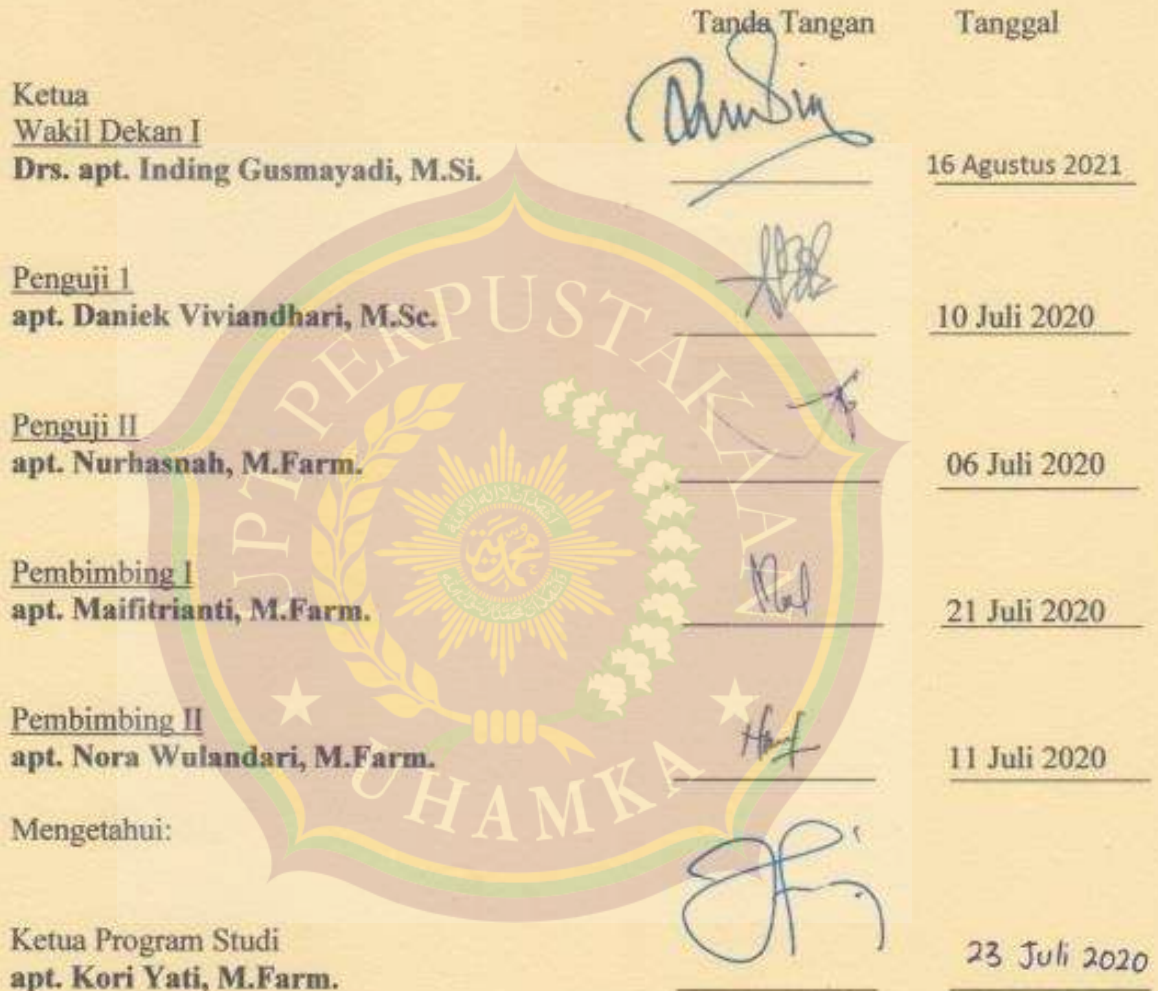 Tanda Tangan Tanggal
Ketua
Wakil Dekan I
Drs. apt. Inding Gusmayadi, M.Si. 16 Agustus 2021
Penguji 1
apt. Daniek Viviandhari, M.Sc. 10 Juli 2020
Penguji II
apt. Nurhasnah, M.Farm. 06 Juli 2020
Pembimbing I
apt. Maifitrianti, M.Farm. 21 Juli 2020
Pembimbing II
apt. Nora Wulandari, M.Farm. 11 Juli 2020
Mengetahui:
Ketua Program Studi
apt. Kori Yati, M.Farm. 23 Juli 2020
UPT PERPUSTAKAAN
UHAMKA